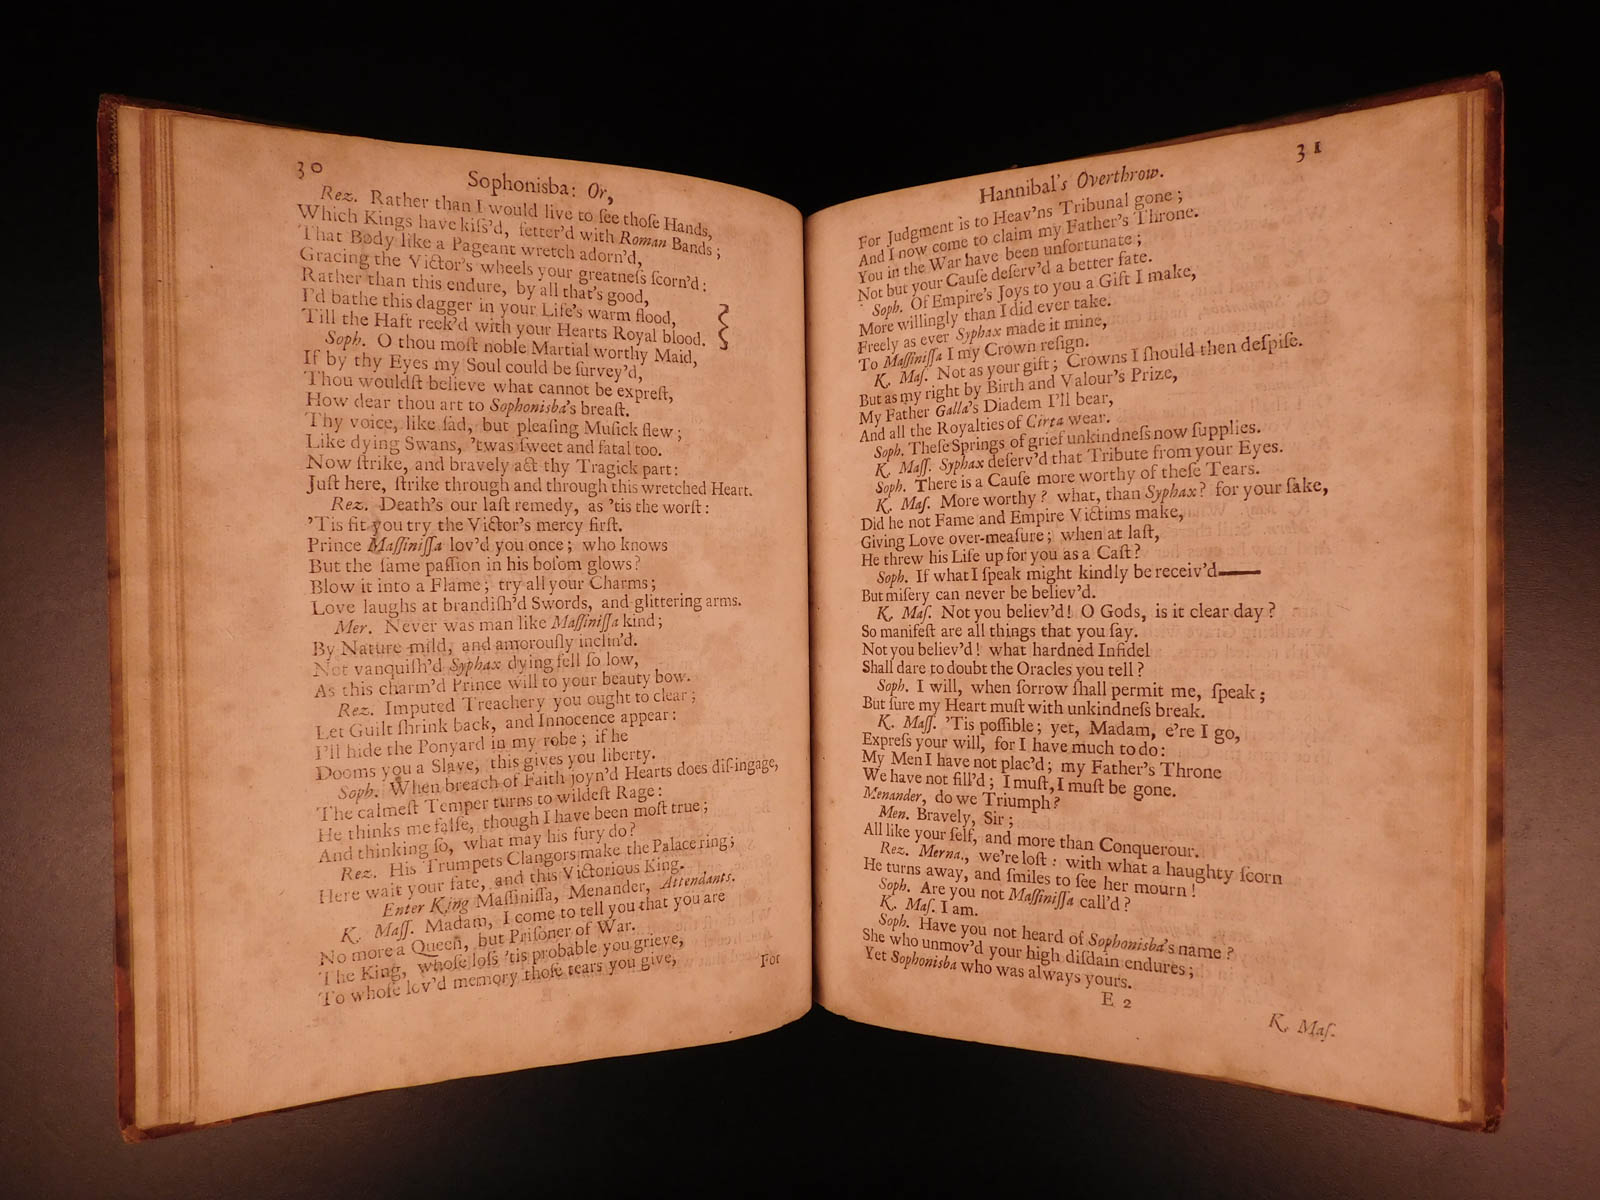 30
Sophonisba: Or,
Rez. Rather than I would live to ſee thoſe Hands,
Which Kings have kiſs'd, fetter'd with Roman Bands;
That Body like a Pageant wretch adorn'd,
Gracing the Victor's wheels your greatneſs ſcorn'd:
Rather than this endure, by all that's good,
I'd bathe this dagger in your Life's warm flood,
Till the Haft reek'd with your Hearts Royal blood.
Soph. O thou moſt noble Martial worthy Maid,
If by thy Eyes my Soul could be ſurvey'd,
Thou wouldſt believe what cannot be expreſt,
How dear thou art to Sophonisba's breaſt.
Thy voice, like ſad, but pleaſing Muſick flew;
Like dying Swans, 'twas ſweet and fatal too.
Now ſtrike, and bravely act thy Tragick part:
Juſt here, ſtrike through and through this wretched Heart.
Rez. Death's our laſt remedy, as 'tis the worſt:
'Tis fit you try the Victor's mercy firſt.
Prince Maſſiniſſa lov'd you once; who knows
But the ſame paſſion in his boſom glows?
Blow it into a Flame; try all your Charms;
Love laughs at brandiſh'd Swords, and glittering arms.
Mer. Never was man like Maſſiniſſa kind;
By Nature mild, and amorouſly inclin'd.
Not vanquiſh'd Syphax dying fell ſo low,
As this charm'd Prince will to your beauty bow.
Rez. Imputed Treachery you ought to clear;
Let Guilt ſhrink back, and Innocence appear:
I'll hide the Ponyard in my robe; if he
Dooms you a Slave, this gives you liberty.
Soph. When breach of Faith joyn'd Hearts does diſ-ingage,
The calmeſt Temper turns to wildeſt Rage:
He thinks me falſe, though I have been moſt true;
And thinking ſo, what may his fury do?
Rez. His Trumpets Clangors make the Palace ring;
Here wait your fate, and this Victorious King.
Enter King Maſſiniſſa, Menander, Attendants.
K. Maſſ. Madam, I come to tell you that you are
No more a Queen, but Priſoner of War.
The King, whoſe loſs 'tis probable you grieve,
To whoſe lov'd memory thoſe tears you give,
For
31
Hannibal's Overthrow.
For Judgment is to Heav'ns Tribunal gone;
And I now come to claim my Father's Throne.
You in the War have been unfortunate;
Not but your Cauſe deſerv'd a better fate.
Soph. Of Empire's Joys to you a Gift I make,
More willingly than I did ever take.
Freely as ever Syphax made it mine,
To Maſſiniſſa I my Crown reſign.
K. Maſ. Not as your gift; Crowns I ſhould then deſpiſe.
But as my right by Birth and Valour's Prize,
My Father Galla's Diadem I'll bear,
And all the Royalties of Cirta wear.
Soph. Theſe Springs of grief unkindneſs now ſupplies.
K. Maſſ. Syphax deſerv'd that Tribute from your Eyes.
Soph. There is a Cauſe more worthy of theſe Tears.
K. Maſ. More worthy? what, than Syphax? for your ſake,
Did he not Fame and Empire Victims make,
Giving Love over-meaſure; when at laſt,
He threw his Life up for you as a Caſt?
Soph. If what I ſpeak might kindly be receiv'd——
But miſery can never be believ'd.
K. Maſ. Not you believ'd! O Gods, is it clear day?
So manifeſt are all things that you ſay.
Not you believ'd! what hardned Infidel
Shall dare to doubt the Oracles you tell?
Soph. I will, when ſorrow ſhall permit me, ſpeak;
But ſure my Heart muſt with unkindneſs break.
K. Maſſ. 'Tis poſſible; yet, Madam, e're I go,
Expreſs your will, for I have much to do:
My Men I have not plac'd; my Father's Throne
We have not fill'd; I muſt, I muſt be gone.
Menander, do we Triumph?
Men. Bravely, Sir;
All like your ſelf, and more than Conquerour.
Rez. Merna, we're loſt: with what a haughty ſcorn
He turns away, and ſmiles to ſee her mourn!
Soph. Are you not Maſſiniſſa call'd?
K. Maſ. I am.
Soph. Have you not heard of Sophonisba's name?
She who unmov'd your high diſdain endures;
Yet Sophonisba who was always yours.
E 2
K. Maſ.